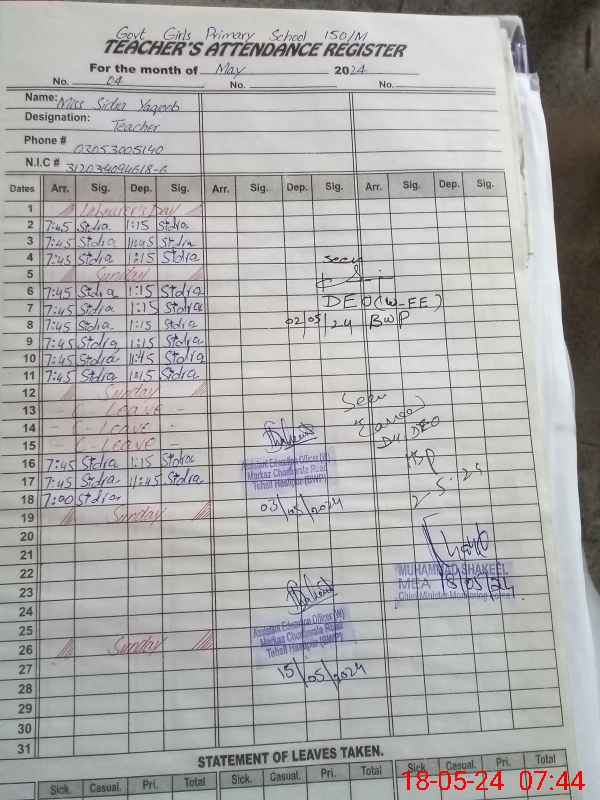 Govt Girls Primary School 150/M
TEACHER'S ATTENDANCE REGISTER
For the month of May 2024
No. 04 No. No.
Name: Miss Sidra Yaqoob
Designation: Teacher
Phone # 03053005140
N.I.C #
Dates Arr. Sig. Dep. Sig. Arr. Sig. Dep. Sig. Arr. Sig. Dep. Sig.
1 Labourer's Day
2 7:45 Sidra 1:15 Sidra
3 7:45 Sidra 11:45 Sidra
4 7:45 Sidra 1:15 Sidra
seen
5 Sunday
6 7:45 Sidra 1:15 Sidra
DEO(W-EE)
7 7:45 Sidra 1:15 Sidra
02/05/24 BWP
8 7:45 Sidra 1:15 Sidra
9 7:45 Sidra 1:15 Sidra
10 7:45 Sidra 11:45 Sidra
11 7:45 Sidra 1:15 Sidra
12 Sunday
Seen
13 - C - LEAVE -
14 - C - LEAVE -
15 - C - LEAVE
16 7:45 Sidra 1:15 Sidra
Assistant Education Officer (W)
17 7:45 Sidra 11:45 Sidra
Tehsil Hasilpur (BWP)
18 7:00 Sidra
03/05/2024
2-5-24
19 Sunday
20
21
22
MUHAMMAD SHAKEEL
MEA 18/05/24
23
24
Assistant Education Officer (W)
25
26 Sunday
Tehsil Hasilpur (BWP)
27
15/05/2024
28
29
30
31
STATEMENT OF LEAVES TAKEN.
Sick. Casual. Pri. Total Sick. Casual. Pri. Total Sick. Casual. Pri. Total
18-05-24 07:44